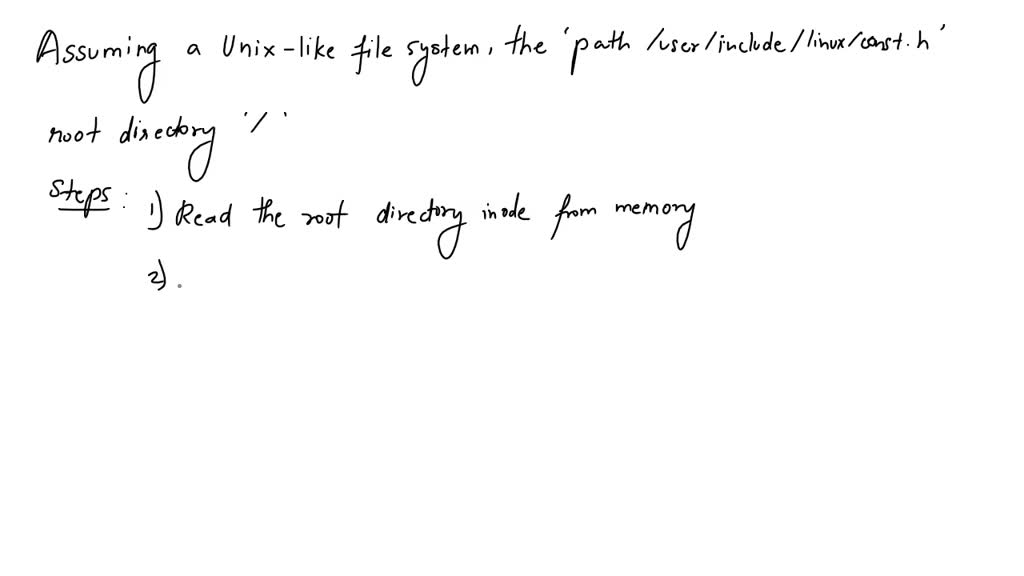 Assuming a Unix-like file system, the 'path /user/include/linux/const.h'
root directory '/'
Steps: 1) Read the root directory inode from memory
2).